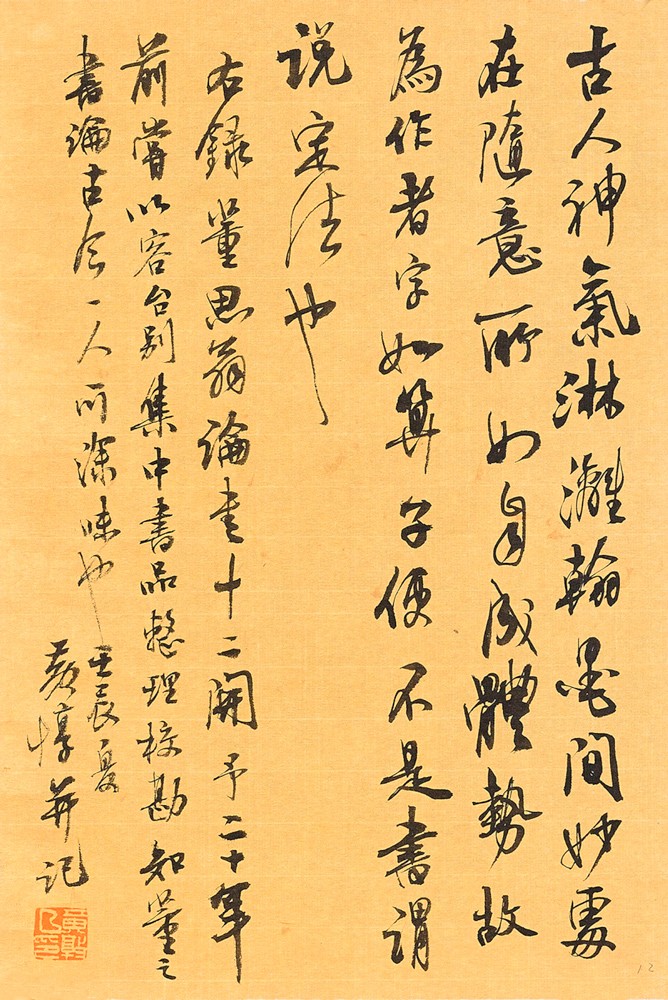 古人神氣淋灕翰墨間妙處
在隨意所如自成體勢故
為作者字如算子便不是書謂
说定法也
右録董思翁論書十二開予二十年
前嘗以容台别集中書品整理校勘知董之
書論古今一人所深味也壬辰夏
黄惇并記
12